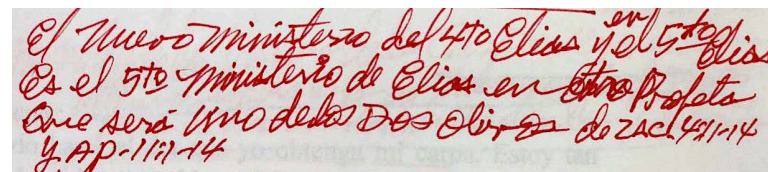 El Nuevo ministerio del 4to Elias y en el 5to Elias
Es el 5to Ministerio de Elias en otro Profeta
Que será Uno de los Dos Olivos de ZAC.4:11-14
y AP-11:1-14 yo obtenga mi carpa. Estoy tan